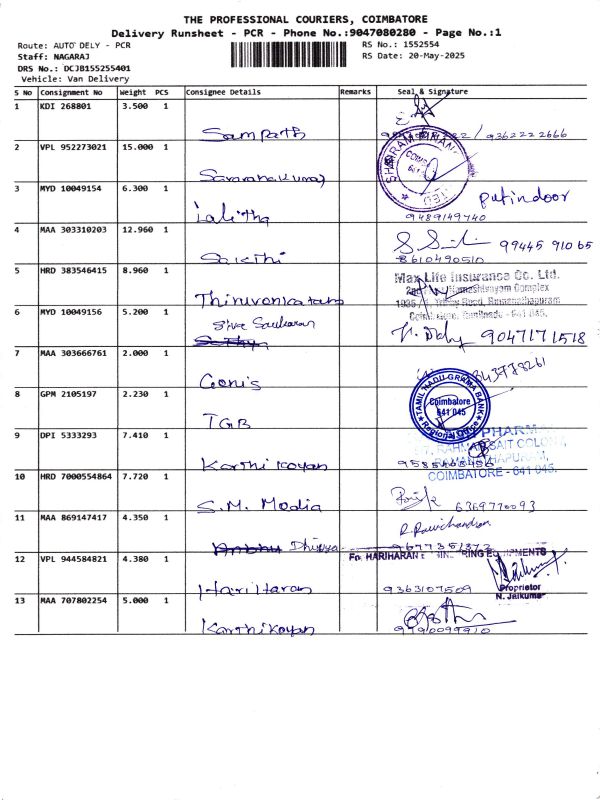 THE PROFESSIONAL COURIERS, COIMBATORE
Delivery Runsheet - PCR - Phone No.:9047080280 - Page No.:1
Route: AUTO DELY - PCR
RS No.: 1552554
Staff: NAGARAJ
RS Date: 20-May-2025
DRS No.: DCJB155255401
Vehicle: Van Delivery
S No Consignment No Weight PCS Consignee Details Remarks Seal & Signature
1 KDI 268801 3.500 1
Sampath / 9362222666
2 VPL 952273021 15.000 1
Saravanakumar
3 MYD 10049154 6.300 1 putindoor
Lalitha 9489149740
4 MAA 303310203 12.960 1 99445 91065
Sakthi 8610490510
5 HRD 383546415 8.960 1
Max Life Insurance Co. Ltd.
Complex
Road, Ramanathapuram
641 045.
6 MYD 10049156 5.200 1
Siva Sankaran 9047171518
7 MAA 303666761 2.000 1
8 GPM 2105197 2.230 1
TAMIL NADU GRAMA BANK
Coimbatore
641 045
Regional Office
TGB
9 DPI 5333293 7.410 1
PHARM
COIMBATORE - 641 045.
Karthikeyan
10 HRD 7000554864 7.720 1
S.M. Media 6369770093
11 MAA 869147417 4.350 1
R. Ravichandran
Dhivya
12 VPL 944584821 4.380 1
For HARIHARAN
Hari Haran 9363107509
Proprietor
N. Jaikumar
13 MAA 707802254 5.000 1
Karthikeyan 9790099910